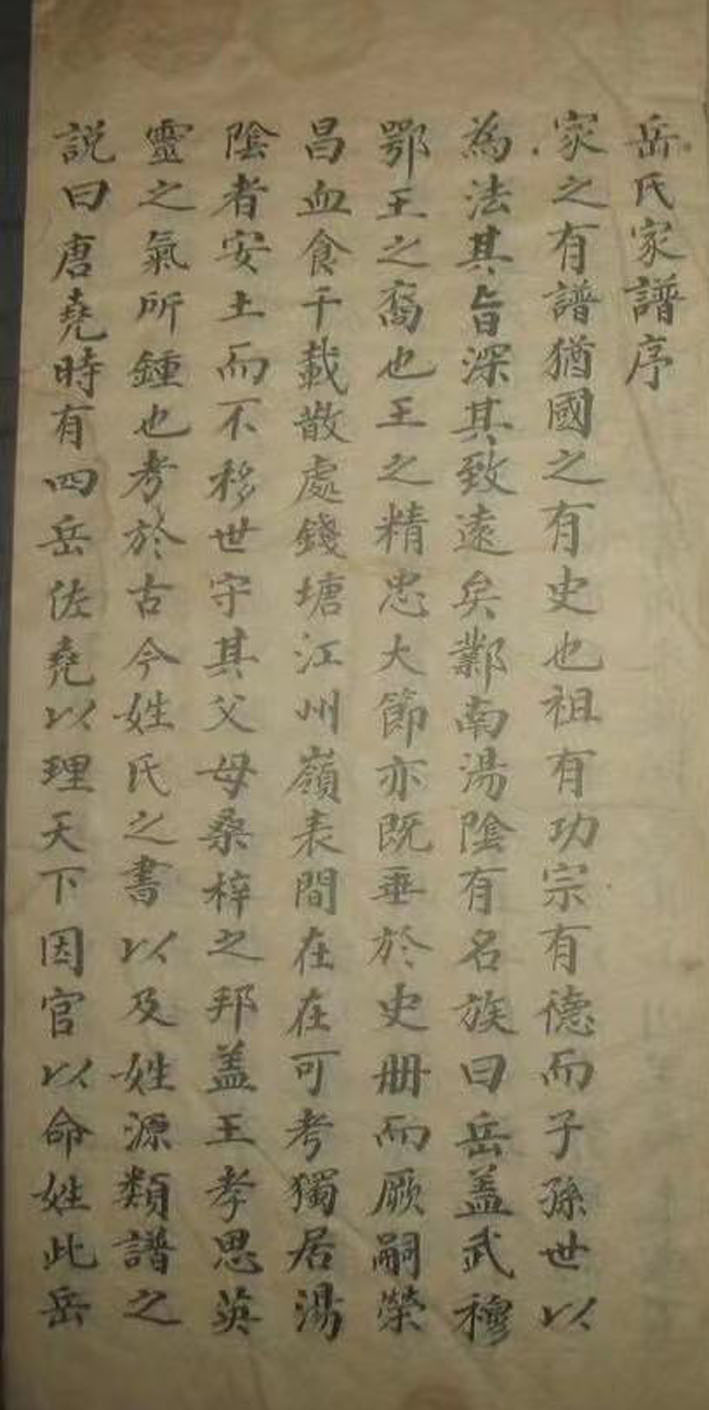 岳氏家譜序
家之有譜猶國之有史也祖有功宗有德而子孫世以
為法其旨深其致遠矣鄴南湯陰有名族曰岳盖武穆
鄂王之裔也王之精忠大節亦既垂於史冊而厥嗣榮
昌血食千載散處錢塘江州嶺表間在在可考獨居湯
陰者安土而不移世守其父母桑梓之邦盖王孝思英
靈之氣所鍾也考於古今姓氏之書以及姓源類譜之
説曰唐堯時有四岳佐堯以理天下因官以命姓此岳